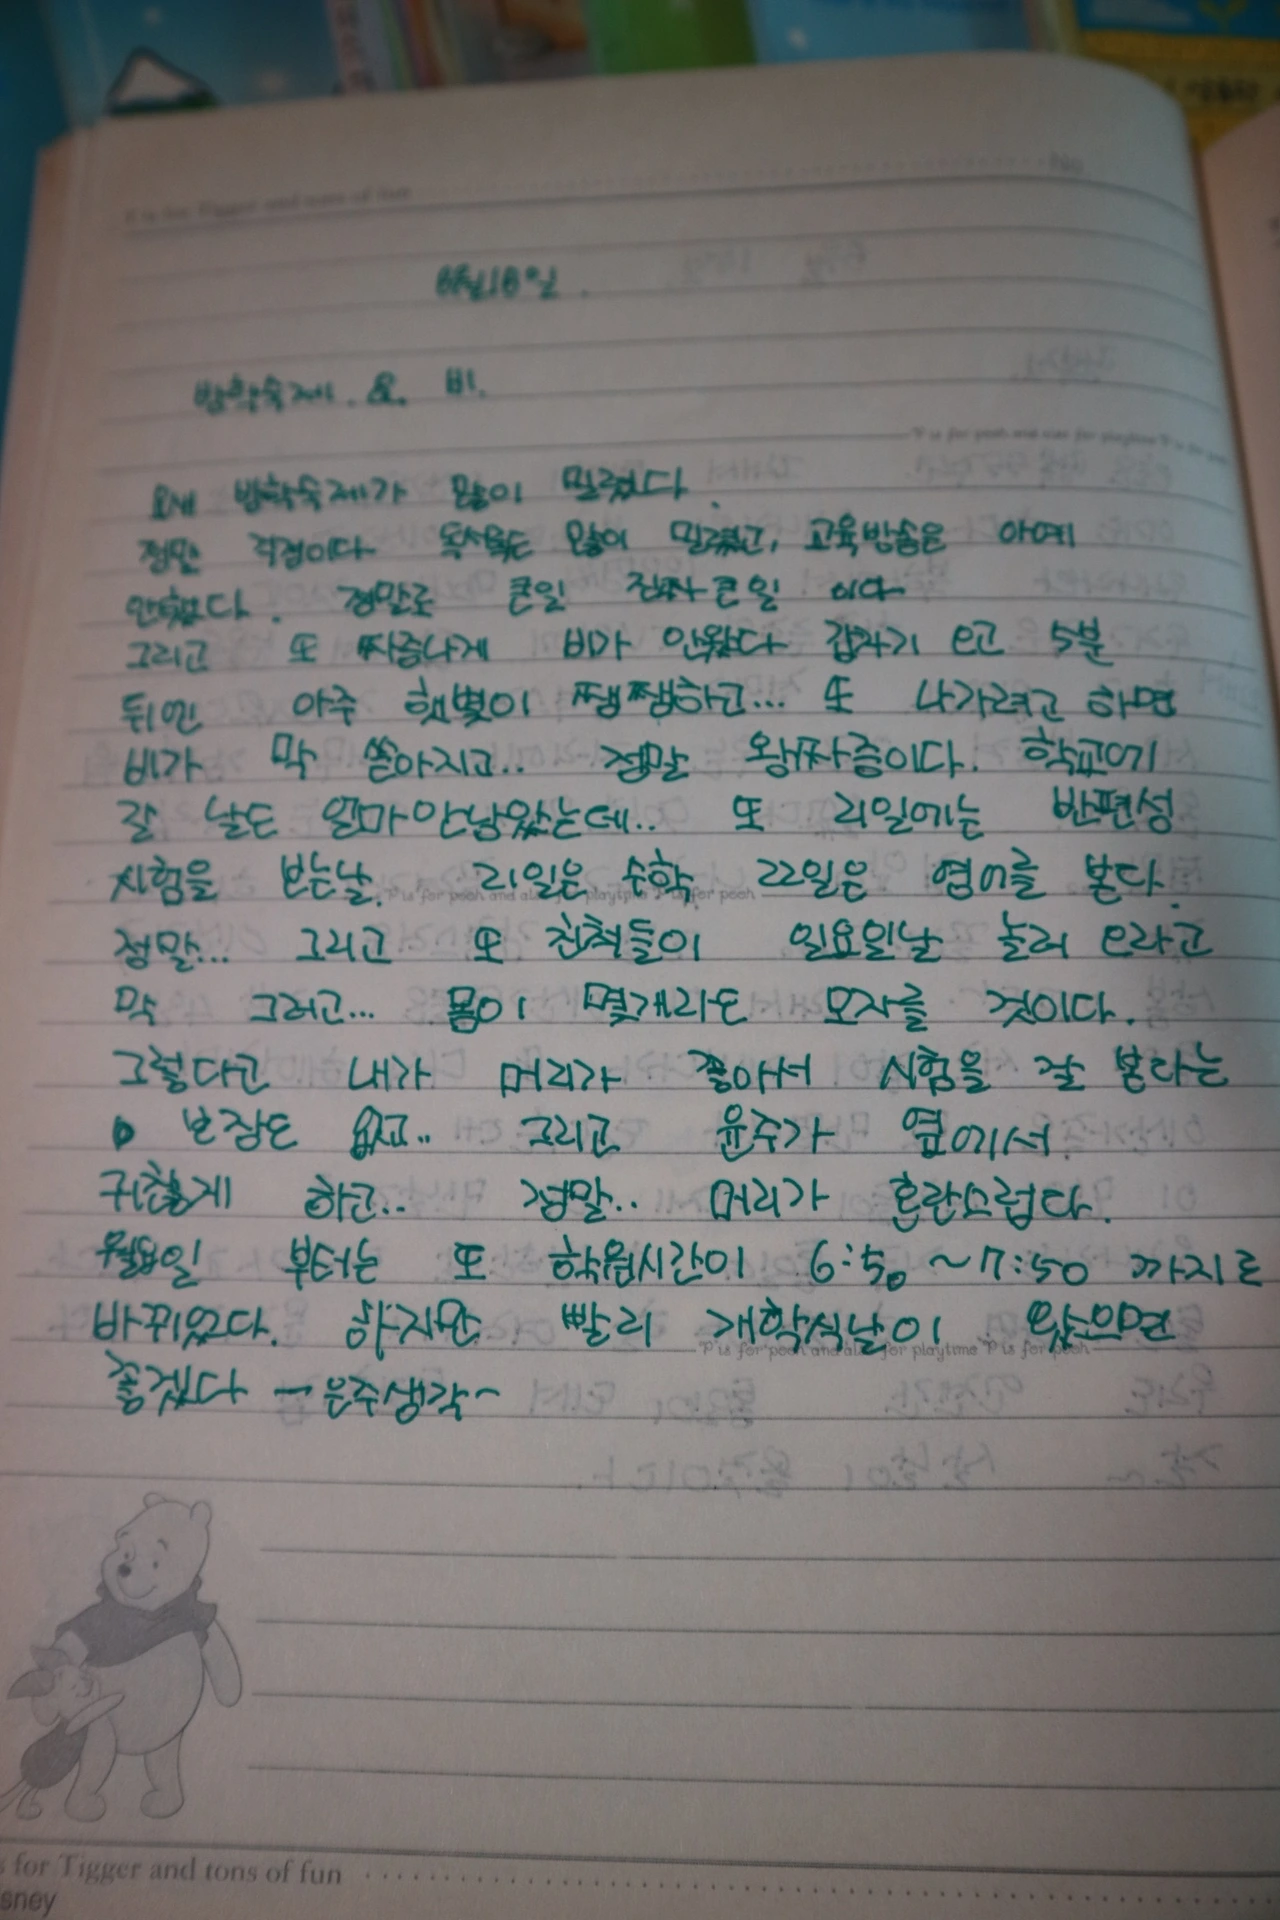 T is for Tigger and tons of fun
8월18일.
방학숙제. 요. 비.
"P is for pooh and
요새 방학숙제가 많이 밀렸다.
정말 걱정이다 독서록도 많이 밀렸고, 교육방송은 아예
안했다. 정말로 큰일 진짜큰일 이다
그리고 또 짜증나게 비가 안왔다 갑자기 오고 5분
뒤엔 아주 햇볓이 쨍쨍하고... 또 나가려고 하면
비가 막 쏟아지고.. 정말 왕짜증이다. 학교에
갈 날도 얼마안남았는데.. 또 21일에는 반편성
시험을 보는날. 21일은 수학, 22일은 영어를 본다.
P is for pooh and also for playtime P is for pooh
정말... 그리고 또 친척들이 일요일날 놀러 오라고
막 그러고... 몸이 몇개라도 모자를 것이다.
그렇다고 내가 머리가 좋아서 시험을 잘 본다는
보장도 없고.. 그리고 윤주가 옆에서
귀찮게 하고.. 정말.. 머리가 혼란스럽다.
월요일 부터는 또 학원시간이 6:50 ~7:50 까지로
바뀌었다. 하지만 빨리 개학식날이 왔으면
"P is for pooh and also for playtime P is for pooh
좋겠다 -은주생각~
s for Tigger and tons of fun
isney